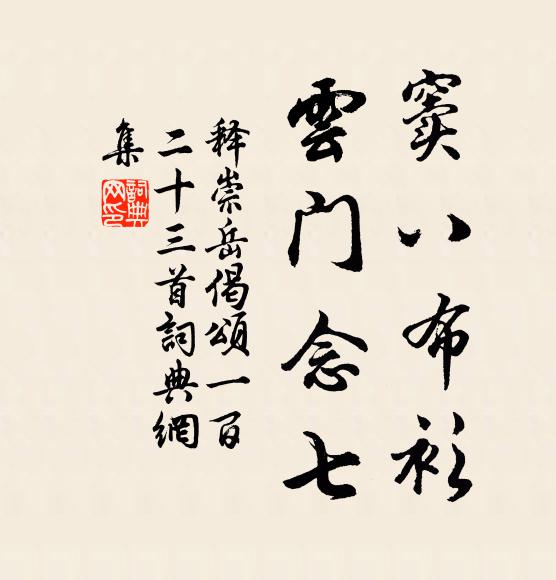 窦八布衫
雲门念七
释崇岳偈頌一百
二十三首詞典網
集
詞典网印